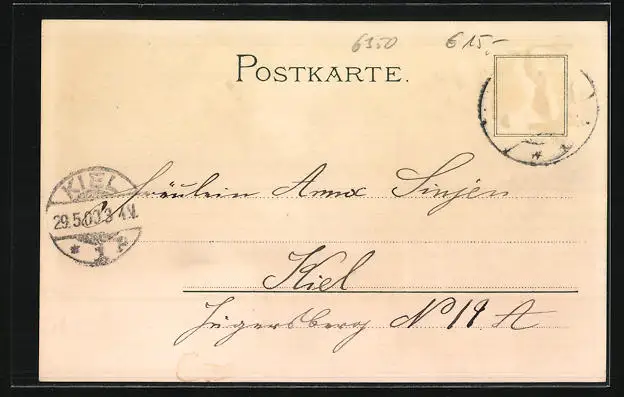 6350 € 15.-
POSTKARTE.
KIEL
29.5.00.3-4N.
* 1 e
Fräulein Anna Sinjen
Kiel
Jägersberg No 19 A